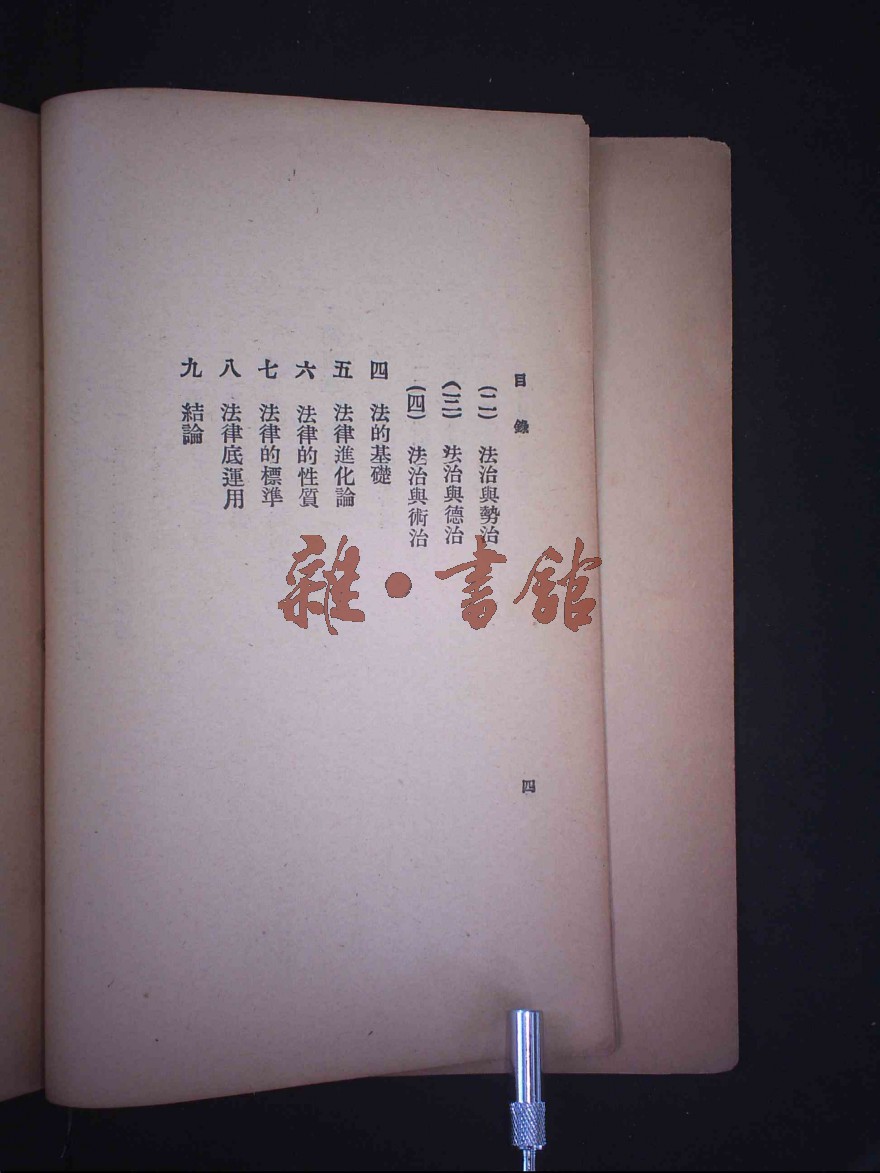 目錄
(二) 法治與勢治
(三) 法治與德治
(四) 法治與術治
四 法的基礎
五 法律進化論
六 法律的性質
七 法律的標準
八 法律底運用
九 結論
四
雜·書館